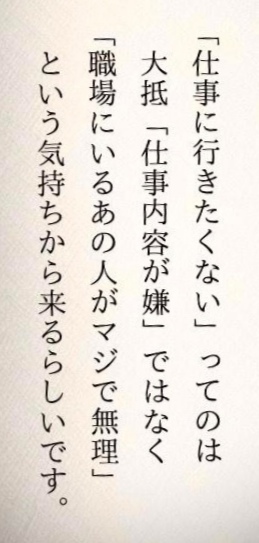 「仕事に行きたくない」ってのは
大抵「仕事内容が嫌」ではなく
「職場にいるあの人がマジで無理」
という気持ちから来るらしいです。